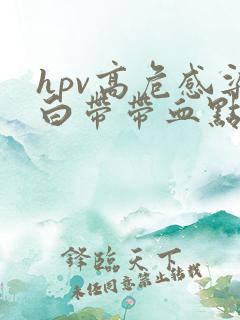 hpv高危感染
白带带血點
鋒臨天下
未经同意禁止转载